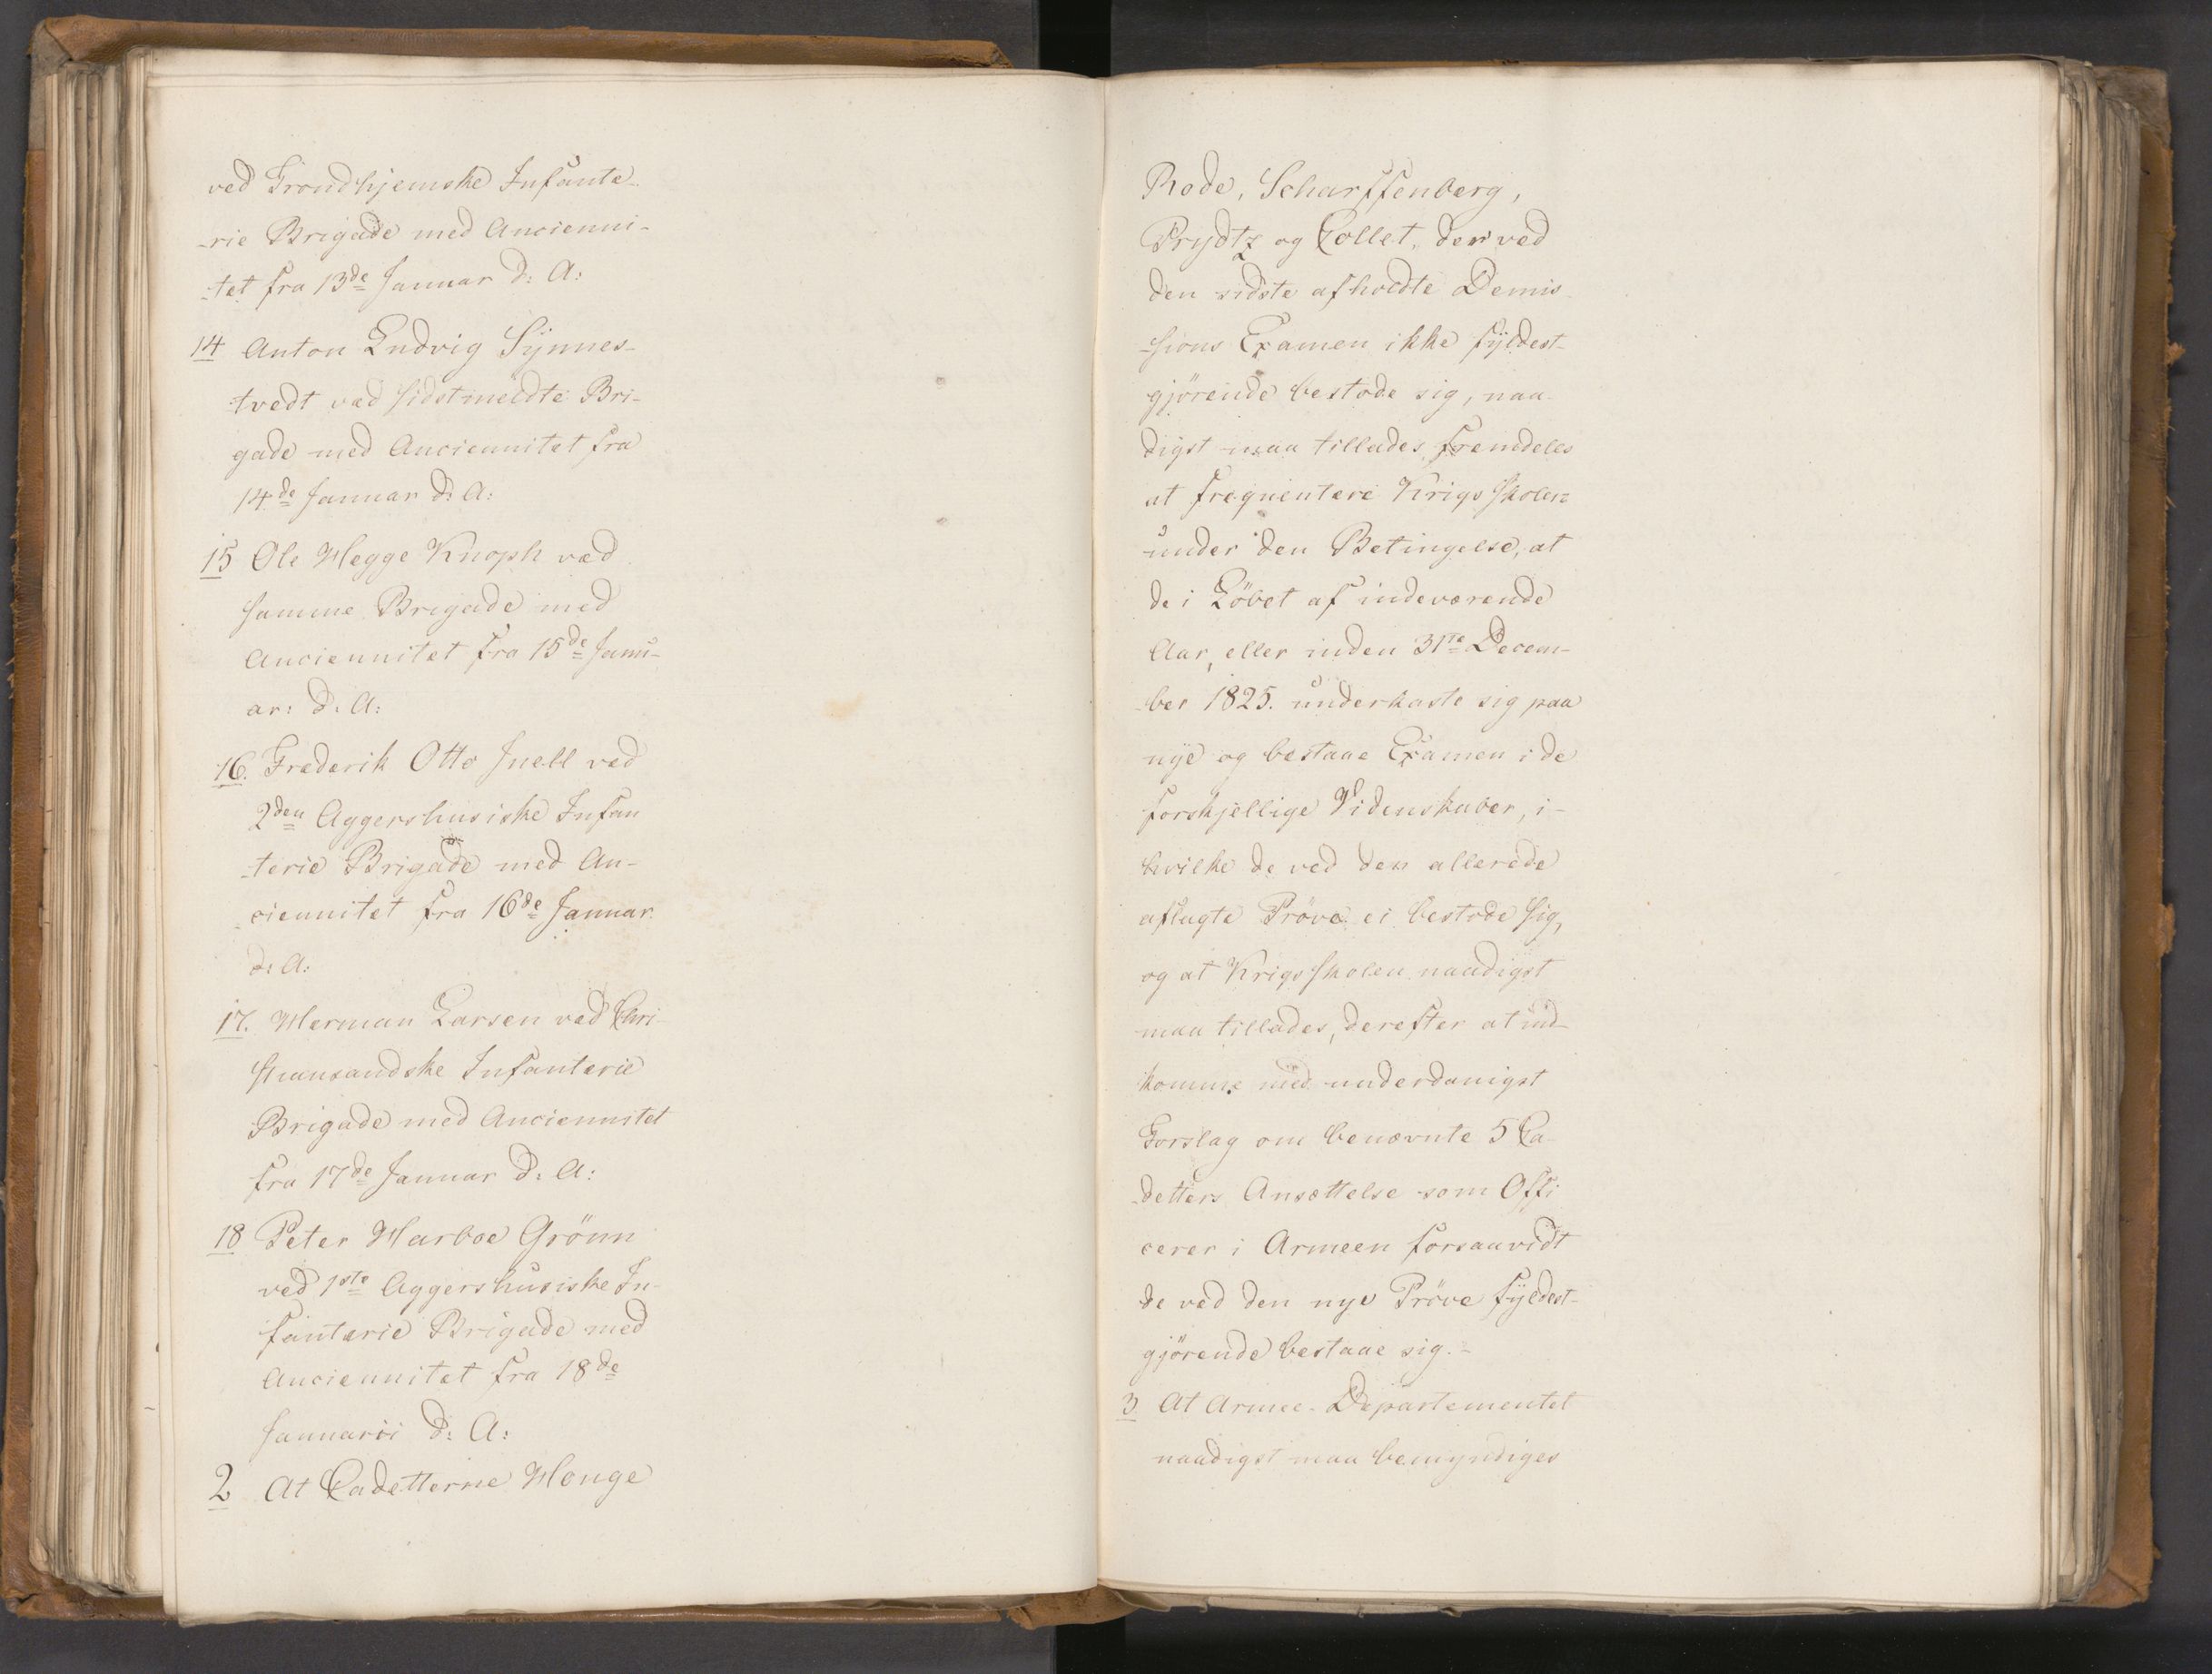 ved Trondhjemske Infante-
-rie Brigade med Ancienni-
-tet fra 13de Januar d: A:
14 Anton Ludvig Synnes-
-tvedt ved sidstmeldte Bri-
gade med Anciennitet fra
14de Januar d: A:
15 Ole Hegge Knoph ved
samme Brigade med
Anciennitet fra 15de Janu-
ar: d: A:
16. Frederik Otto Juell ved
2den Aggershusiske Infan
-terie Brigade med An-
ciennitet fra 16de Januar
d: A:
17. Herman Larsen ved Chri-
stiansandske Infanterie
Brigade med Anciennitet
fra 17de Januar d: A:
18 Peter Harboe Grönn
ved 1ste Aggershusiske In-
fanterie Brigade med
Anciennitet fra 18de
Januarii d: A:
2 At Cadetterne Houge
Rode, Scharffenberg,
Prydtz og Collet, der ved
den sidste afholdte Demis-
-sions Examen ikke fyldest-
gjörende bestode sig, naa-
digst maa tillades fremdeles
at freqventere Krigsskolen
under den Betingelse, at
de i Löbet af indeværende
Aar, eller inden 31te Decem-
-ber 1825. underkaste sig paa
nye og bestaae Examen i de
forskjellige Videnskaber, i-
hvilke de ved den allerede
aflagte Pröve ei bestode sig,
og at Krigsskolen naadigst
maa tillades, derefter at ind-
komme med underdanigst
Forslag om benævnte 5 Ca-
-detters Ansættelse som Offi
cerer i Armeen forsaavidt
de ved den nye Pröve fyldest-
gjörende bestaae sig.-
3. At Armee-Departementet
naadigst maa bemyndiges